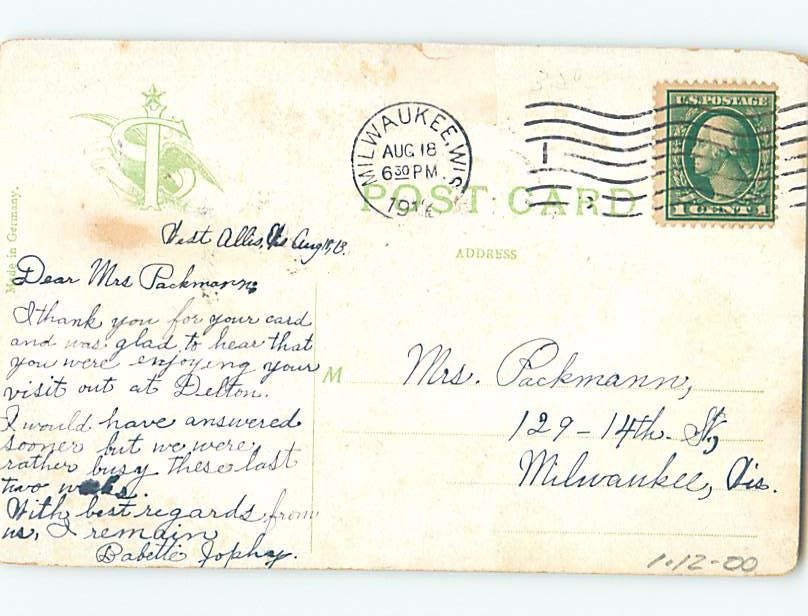 MILWAUKEE, WIS.
AUG 18
6 30 PM
U.S. POSTAGE
1 CENT 1
POST CARD
ADDRESS
Made in Germany.
West Allis, Wis Aug 18, 13.
Dear Mrs Packmann:
I thank you for your card
and was glad to hear that
you were enjoying your
visit out at Delton.
I would have answered
sooner but we were
rather busy these last
two weeks.
With best regards from
us, I remain
Babette Jophy.
M
Mrs. Packmann,
129-14th St,
Milwaukee, Wis.
1.12-00